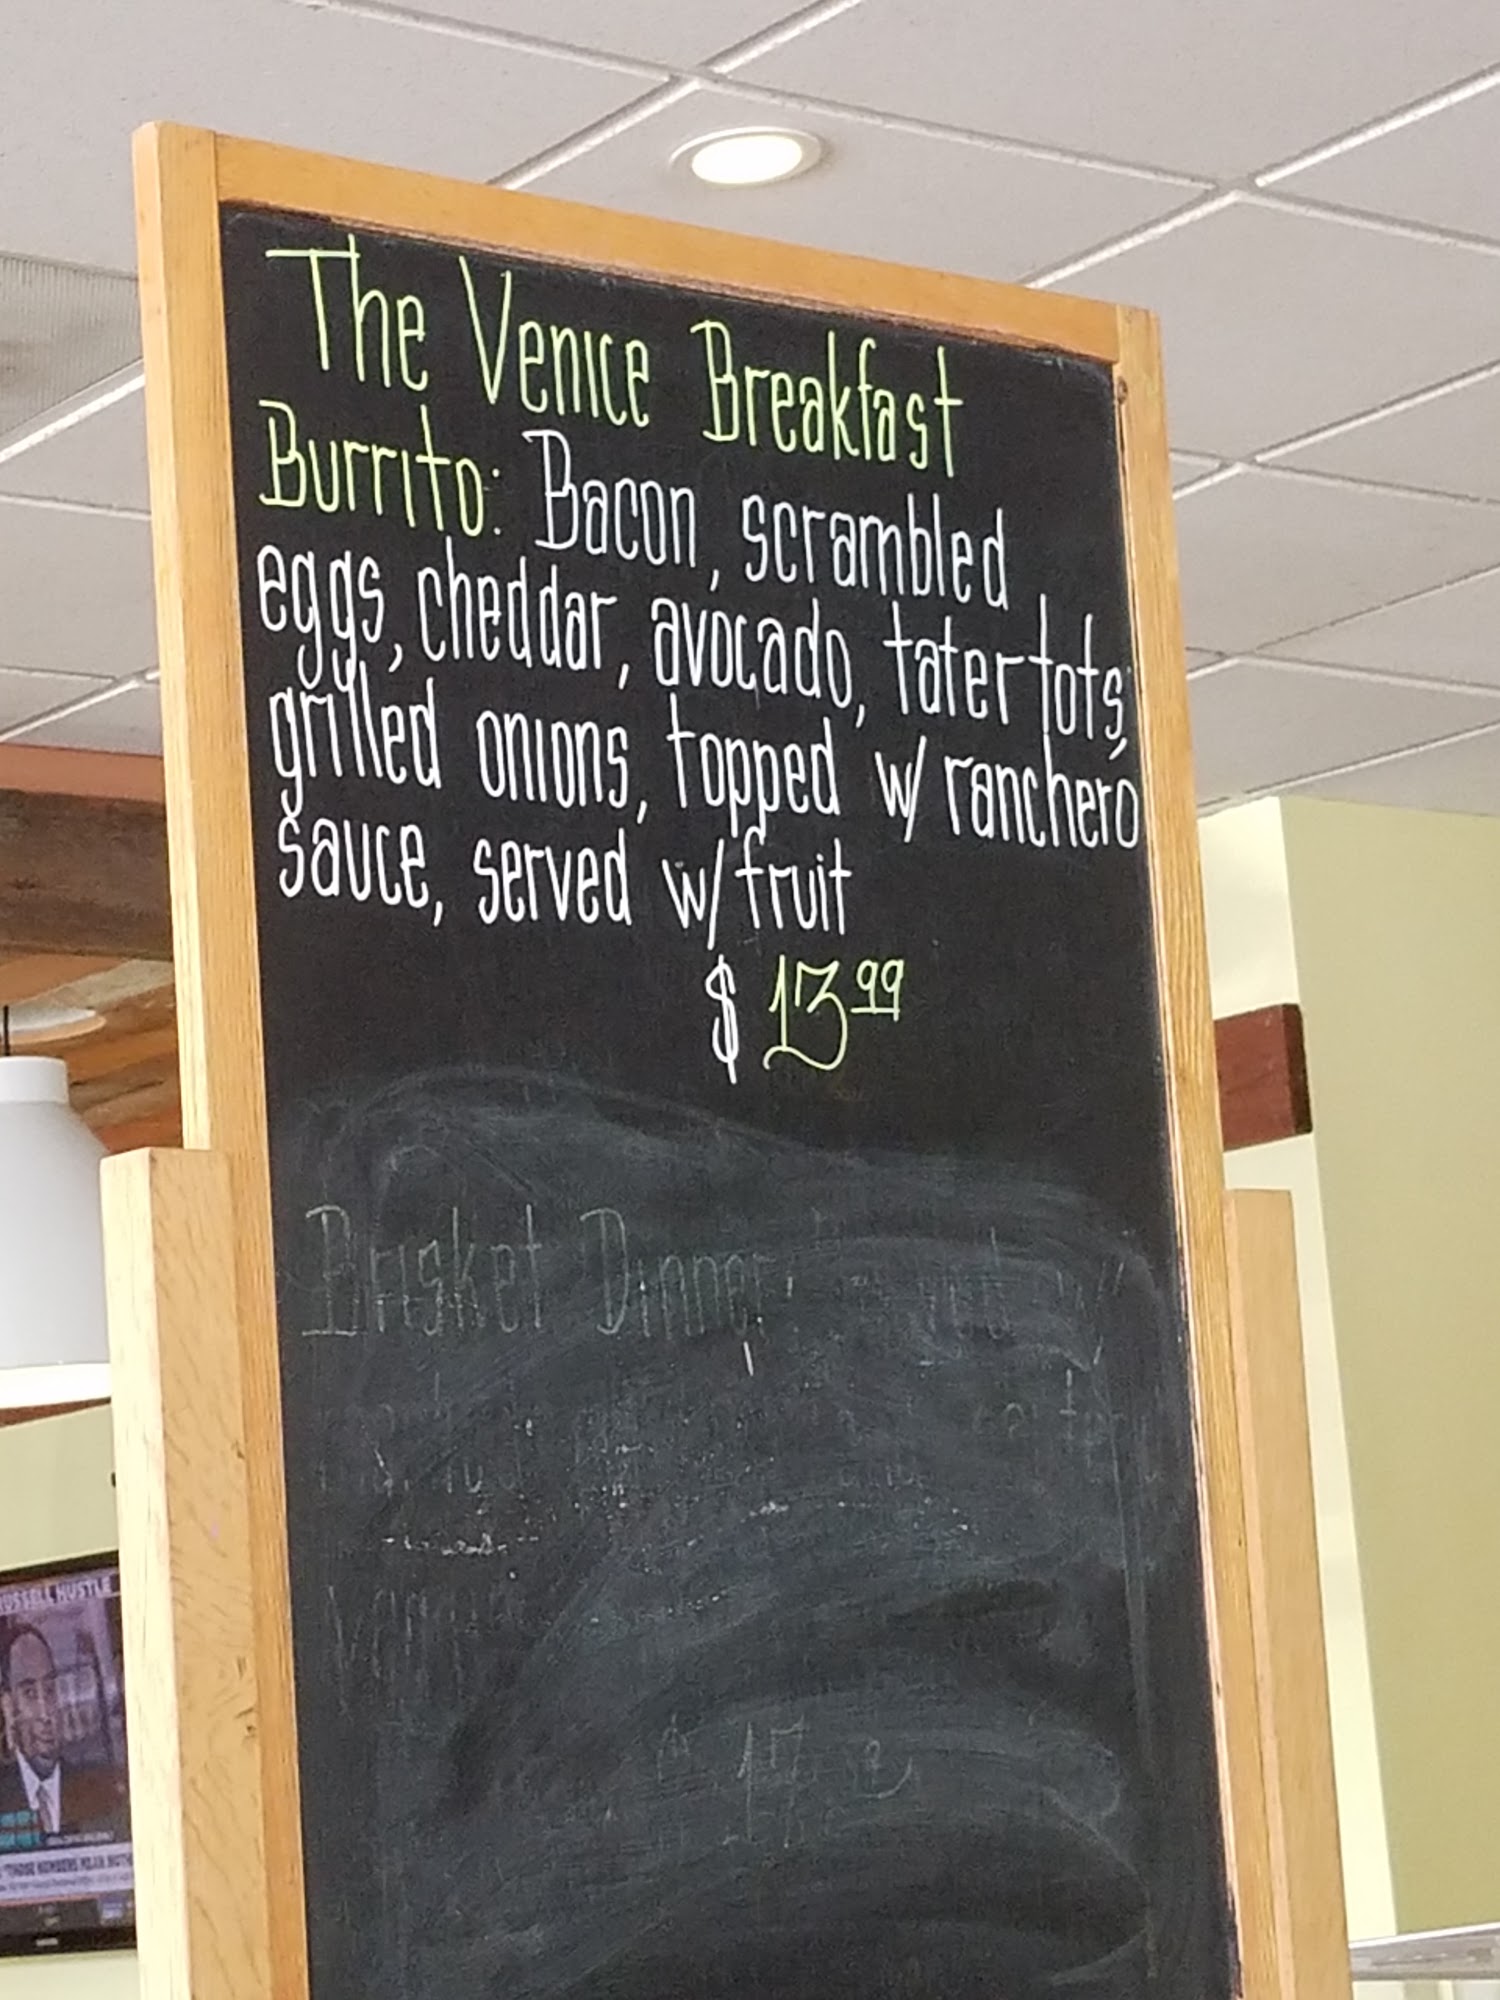 The Venice Breakfast
Burrito: Bacon, scrambled
eggs, cheddar, avocado, tater tots,
grilled onions, topped w/ ranchero
sauce, served w/ fruit
$ 13 99
Brisket Dinner
RUSSELL HUSTLE